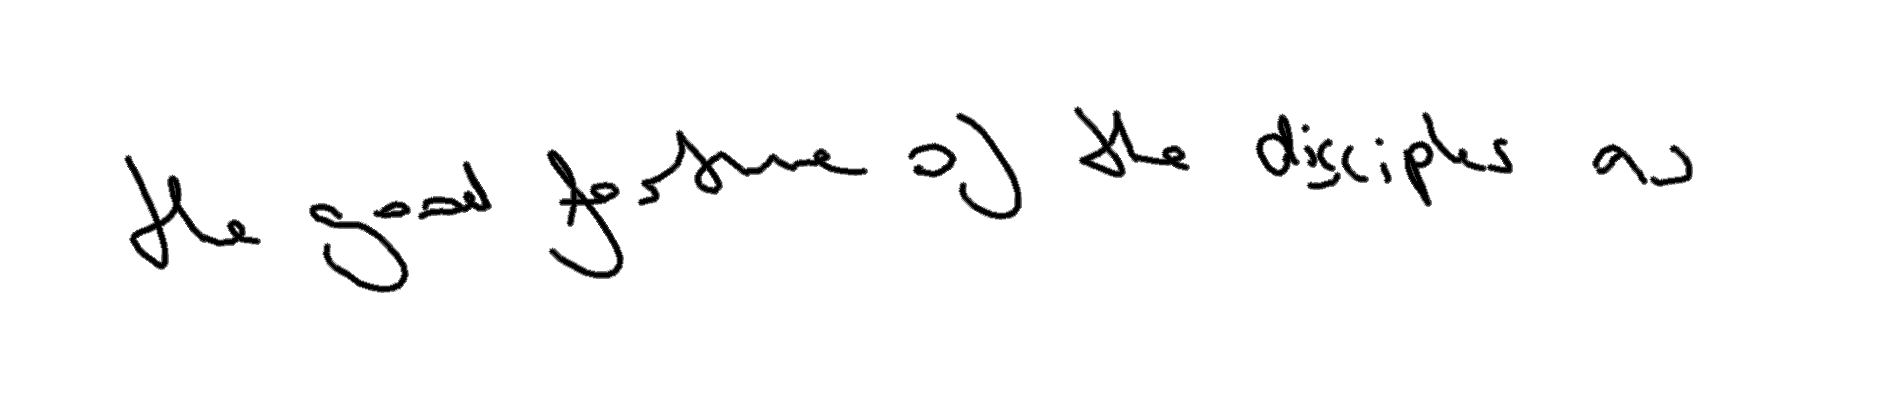 the good fortune of the disciples as